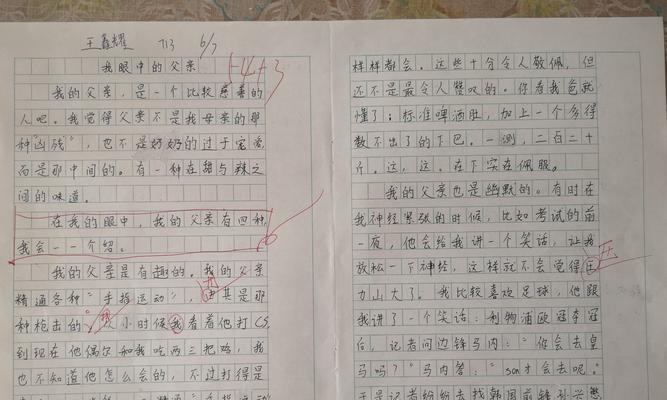 王鑫耀 713 6/7
我眼中的父亲
-4+3
我的父亲，是一个比较慈善的
人吧。我觉得父亲不是我母亲的那
种“凶残”，也不是奶奶的过于宠爱，
而是那中间的。有一种在甜与辣之
间的味道。
在我的眼中，我的父亲有四种，
我会一一个绍。
我的父亲是有趣的。我的父亲
精通各种“手指运动”，其是那
种枪击的。小时候我看着他打CS，
到现在他偶尔和我吃两三把鸡，我
也不知道他怎么会的，不过打得是
样样都会。这些十分令人敬佩，但
还不是最令人赞叹的。你看我爸就
懂了；标准啤酒肚，加上一个多得
数不出了的下巴。一测，二百二十
斤。这，这。在下实在佩服。
我的父亲也是幽默的。有时在
我神经紧张的时候，比如考试的前
一夜，他会给我讲一个笑话，让我
放松一下神经，这样就不会觉得压
力山大了。我比较喜欢足球，他跟
我讲了一个笑话：利物浦欧冠夺冠
后，记者问边锋马内：“你会去皇
马吗？”马内答：“son才会去呢。”
于是记者纷纷去找韩国前锋孙兴慜